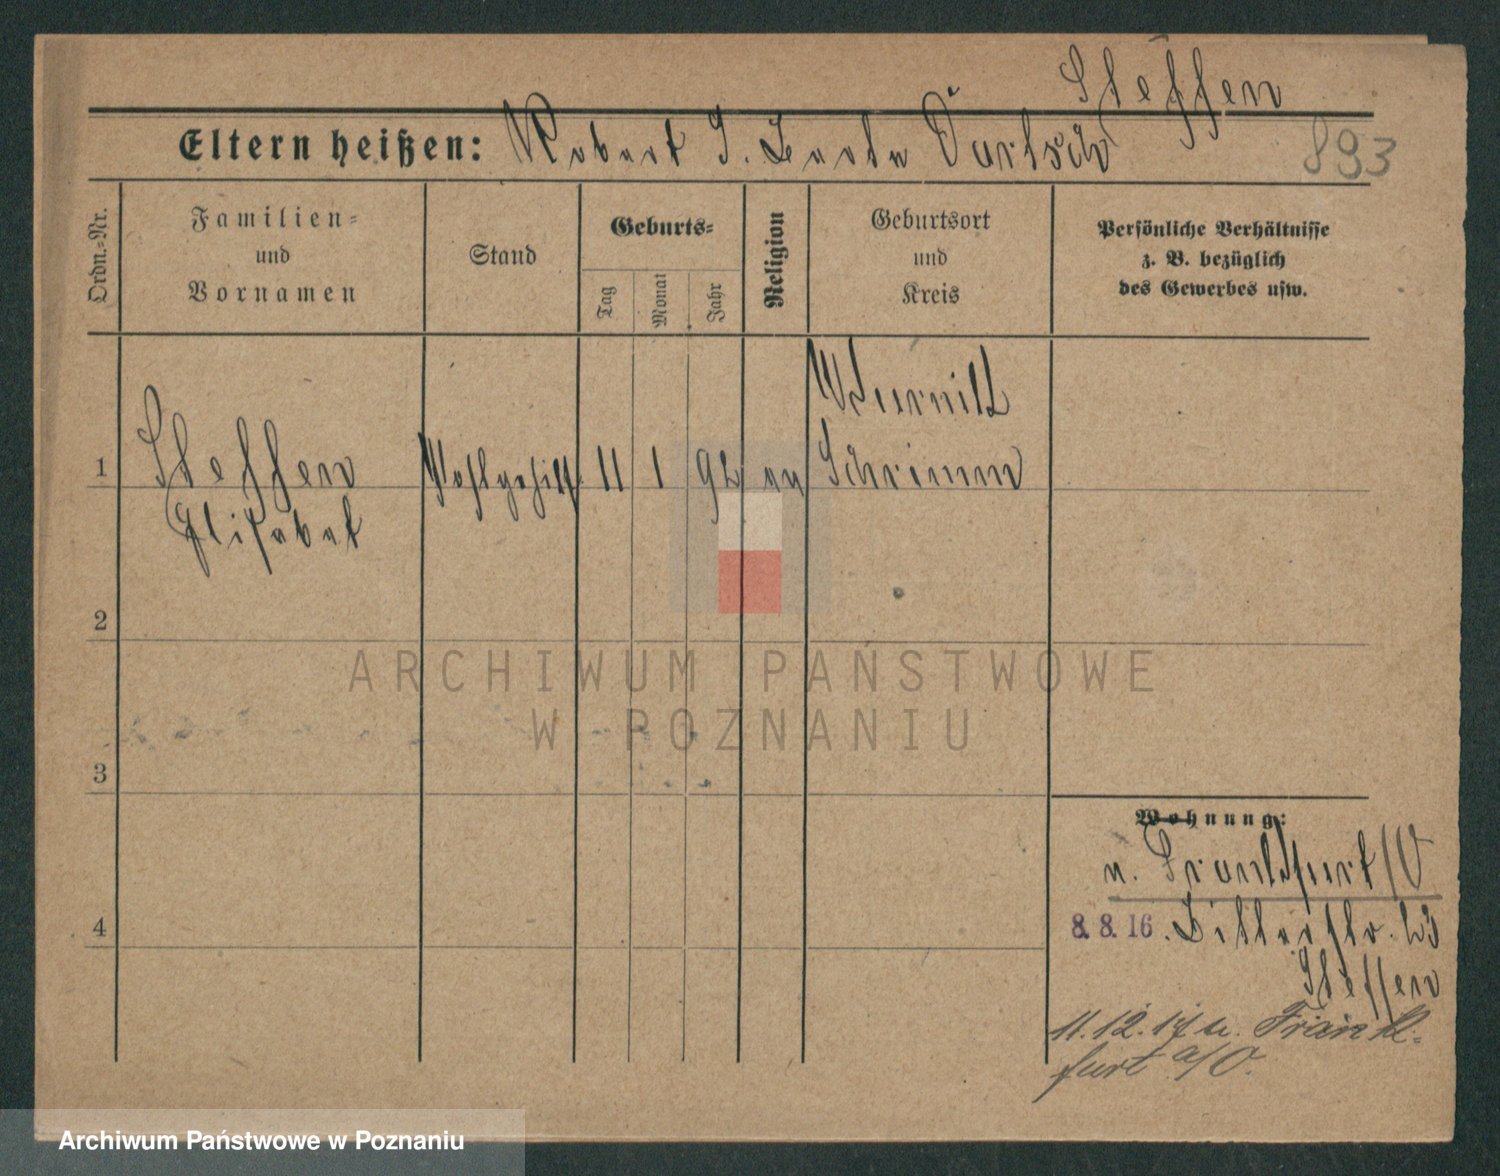 Steffen
Eltern heißen: Robert u. Berta Dürtsch
893
Ordn.-Nr.
Familien-
und
Vornamen
Stand
Geburts-
Tag
Monat
Jahr
Religion
Geburtsort
und
Kreis
Persönliche Verhältnisse
z. B. bezüglich
des Gewerbes usw.
1
Steffen
Elisabet
11 1 92
Schrimm
2
3
4
Wohnung:
n. Frankfurt/O
8. 8. 16. 23
Steffen
11.12.17 n. Frank-
furt a/O.
ARCHIWUM PAŃSTWOWE
W POZNANIU
Archiwum Państwowe w Poznaniu